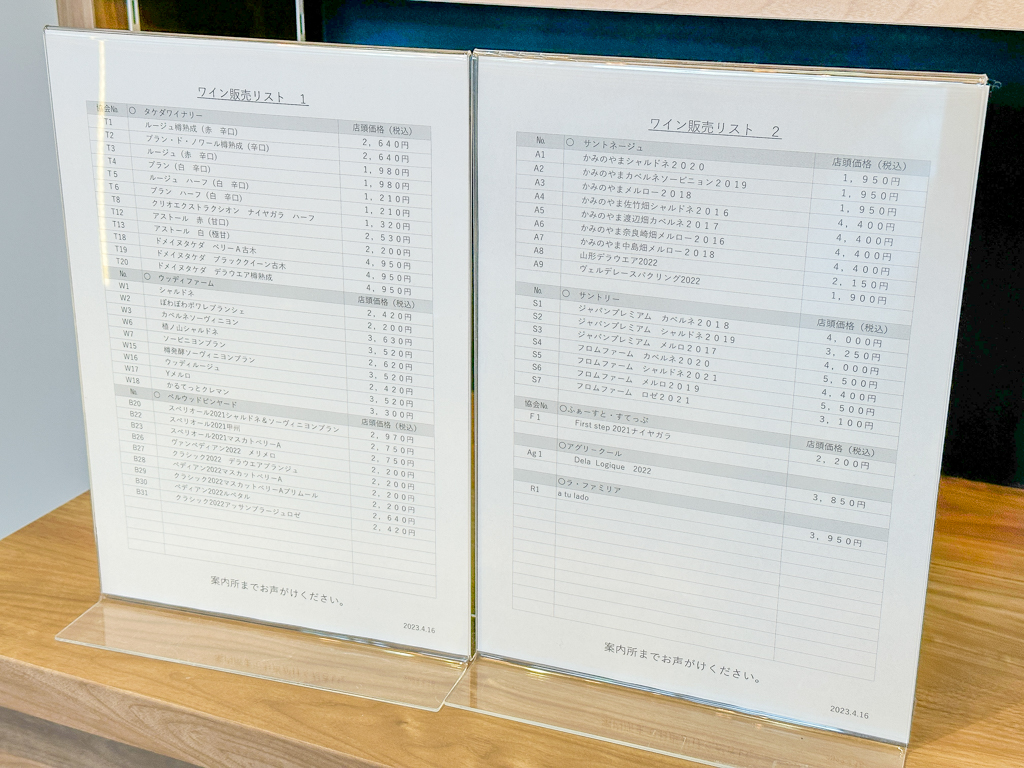 ワイン販売リスト 1
協会№ ○ タケダワイナリー 店頭価格（税込）
T1 ルージュ樽熟成（赤 辛口） 2,640円
T2 ブラン・ド・ノワール樽熟成（辛口） 2,640円
T3 ルージュ（赤 辛口） 1,980円
T4 ブラン（白 辛口） 1,980円
T5 ルージュ ハーフ（白 辛口） 1,210円
T6 ブラン ハーフ（白 辛口） 1,210円
T8 クリオエクストラクシオン ナイヤガラ ハーフ 1,320円
T12 アストール 赤（甘口） 2,530円
T13 アストール 白（極甘） 2,200円
T18 ドメイヌタケダ ベリーA古木 4,950円
T19 ドメイヌタケダ ブラッククイーン古木 4,950円
T20 ドメイヌタケダ デラウエア樽熟成 4,950円
№ ○ ウッディファーム 店頭価格（税込）
W1 シャルドネ 2,420円
W2 ぽわぽわポワレブランシュ 2,200円
W3 カベルネソーヴィニヨン 3,630円
W6 ノ山シャルドネ 3,520円
W7 ソービニヨンブラン 2,620円
W15 樽発酵ソーヴィニヨンブラン 3,520円
W16 ウッディルージュ 2,420円
W17 Yメルロ 3,520円
W18 かるてっとクレマン 3,300円
№ ○ ベルウッドビンヤード 店頭価格（税込）
B20 スペリオール2021シャルドネ＆ソーヴィニヨンブラン 2,970円
B22 スペリオール2021甲州 2,750円
B23 スペリオール2021マスカットベリーA 2,750円
B26 ヴァンペディアン2022 メリメロ 2,200円
B27 クラシック2022 デラウエアブランジュ 2,200円
B28 ペディアン2022マスカットベリーA 2,200円
B29 クラシック2022マスカットベリーAプリムール 2,200円
B30 ペディアン2022ルペタル 2,640円
B31 クラシック2022アッサンブラージュロゼ 2,420円
案内所までお声がけください。
2023.4.16
ワイン販売リスト 2
№ ○ サントネージュ 店頭価格（税込）
A1 かみのやまシャルドネ2020 1,950円
A2 かみのやまカベルネソービニョン2019 1,950円
A3 かみのやまメルロー2018 1,950円
A4 かみのやま佐竹畑シャルドネ2016 4,400円
A5 かみのやま渡辺畑カベルネ2017 4,400円
A6 かみのやま奈良崎畑メルロー2016 4,400円
A7 かみのやま中島畑メルロー2018 4,400円
A8 山形デラウエア2022 2,150円
A9 ヴェルデレースパクリング2022 1,900円
№ ○ サントリー 店頭価格（税込）
S1 ジャパンプレミアム カベルネ2018 4,000円
S2 ジャパンプレミアム シャルドネ2019 3,250円
S3 ジャパンプレミアム メルロ2017 4,000円
S4 フロムファーム カベルネ2020 5,500円
S5 フロムファーム シャルドネ2021 4,400円
S6 フロムファーム メルロ2019 5,500円
S7 フロムファーム ロゼ2021 3,100円
協会№ ○ふぁーすと・すてっぷ 店頭価格（税込）
F1 First step 2021ナイヤガラ 2,200円
○アグリークール
Ag1 Dela Logique 2022 3,850円
○ラ・ファミリア
R1 a tu lado 3,950円
案内所までお声がけください。
2023.4.16